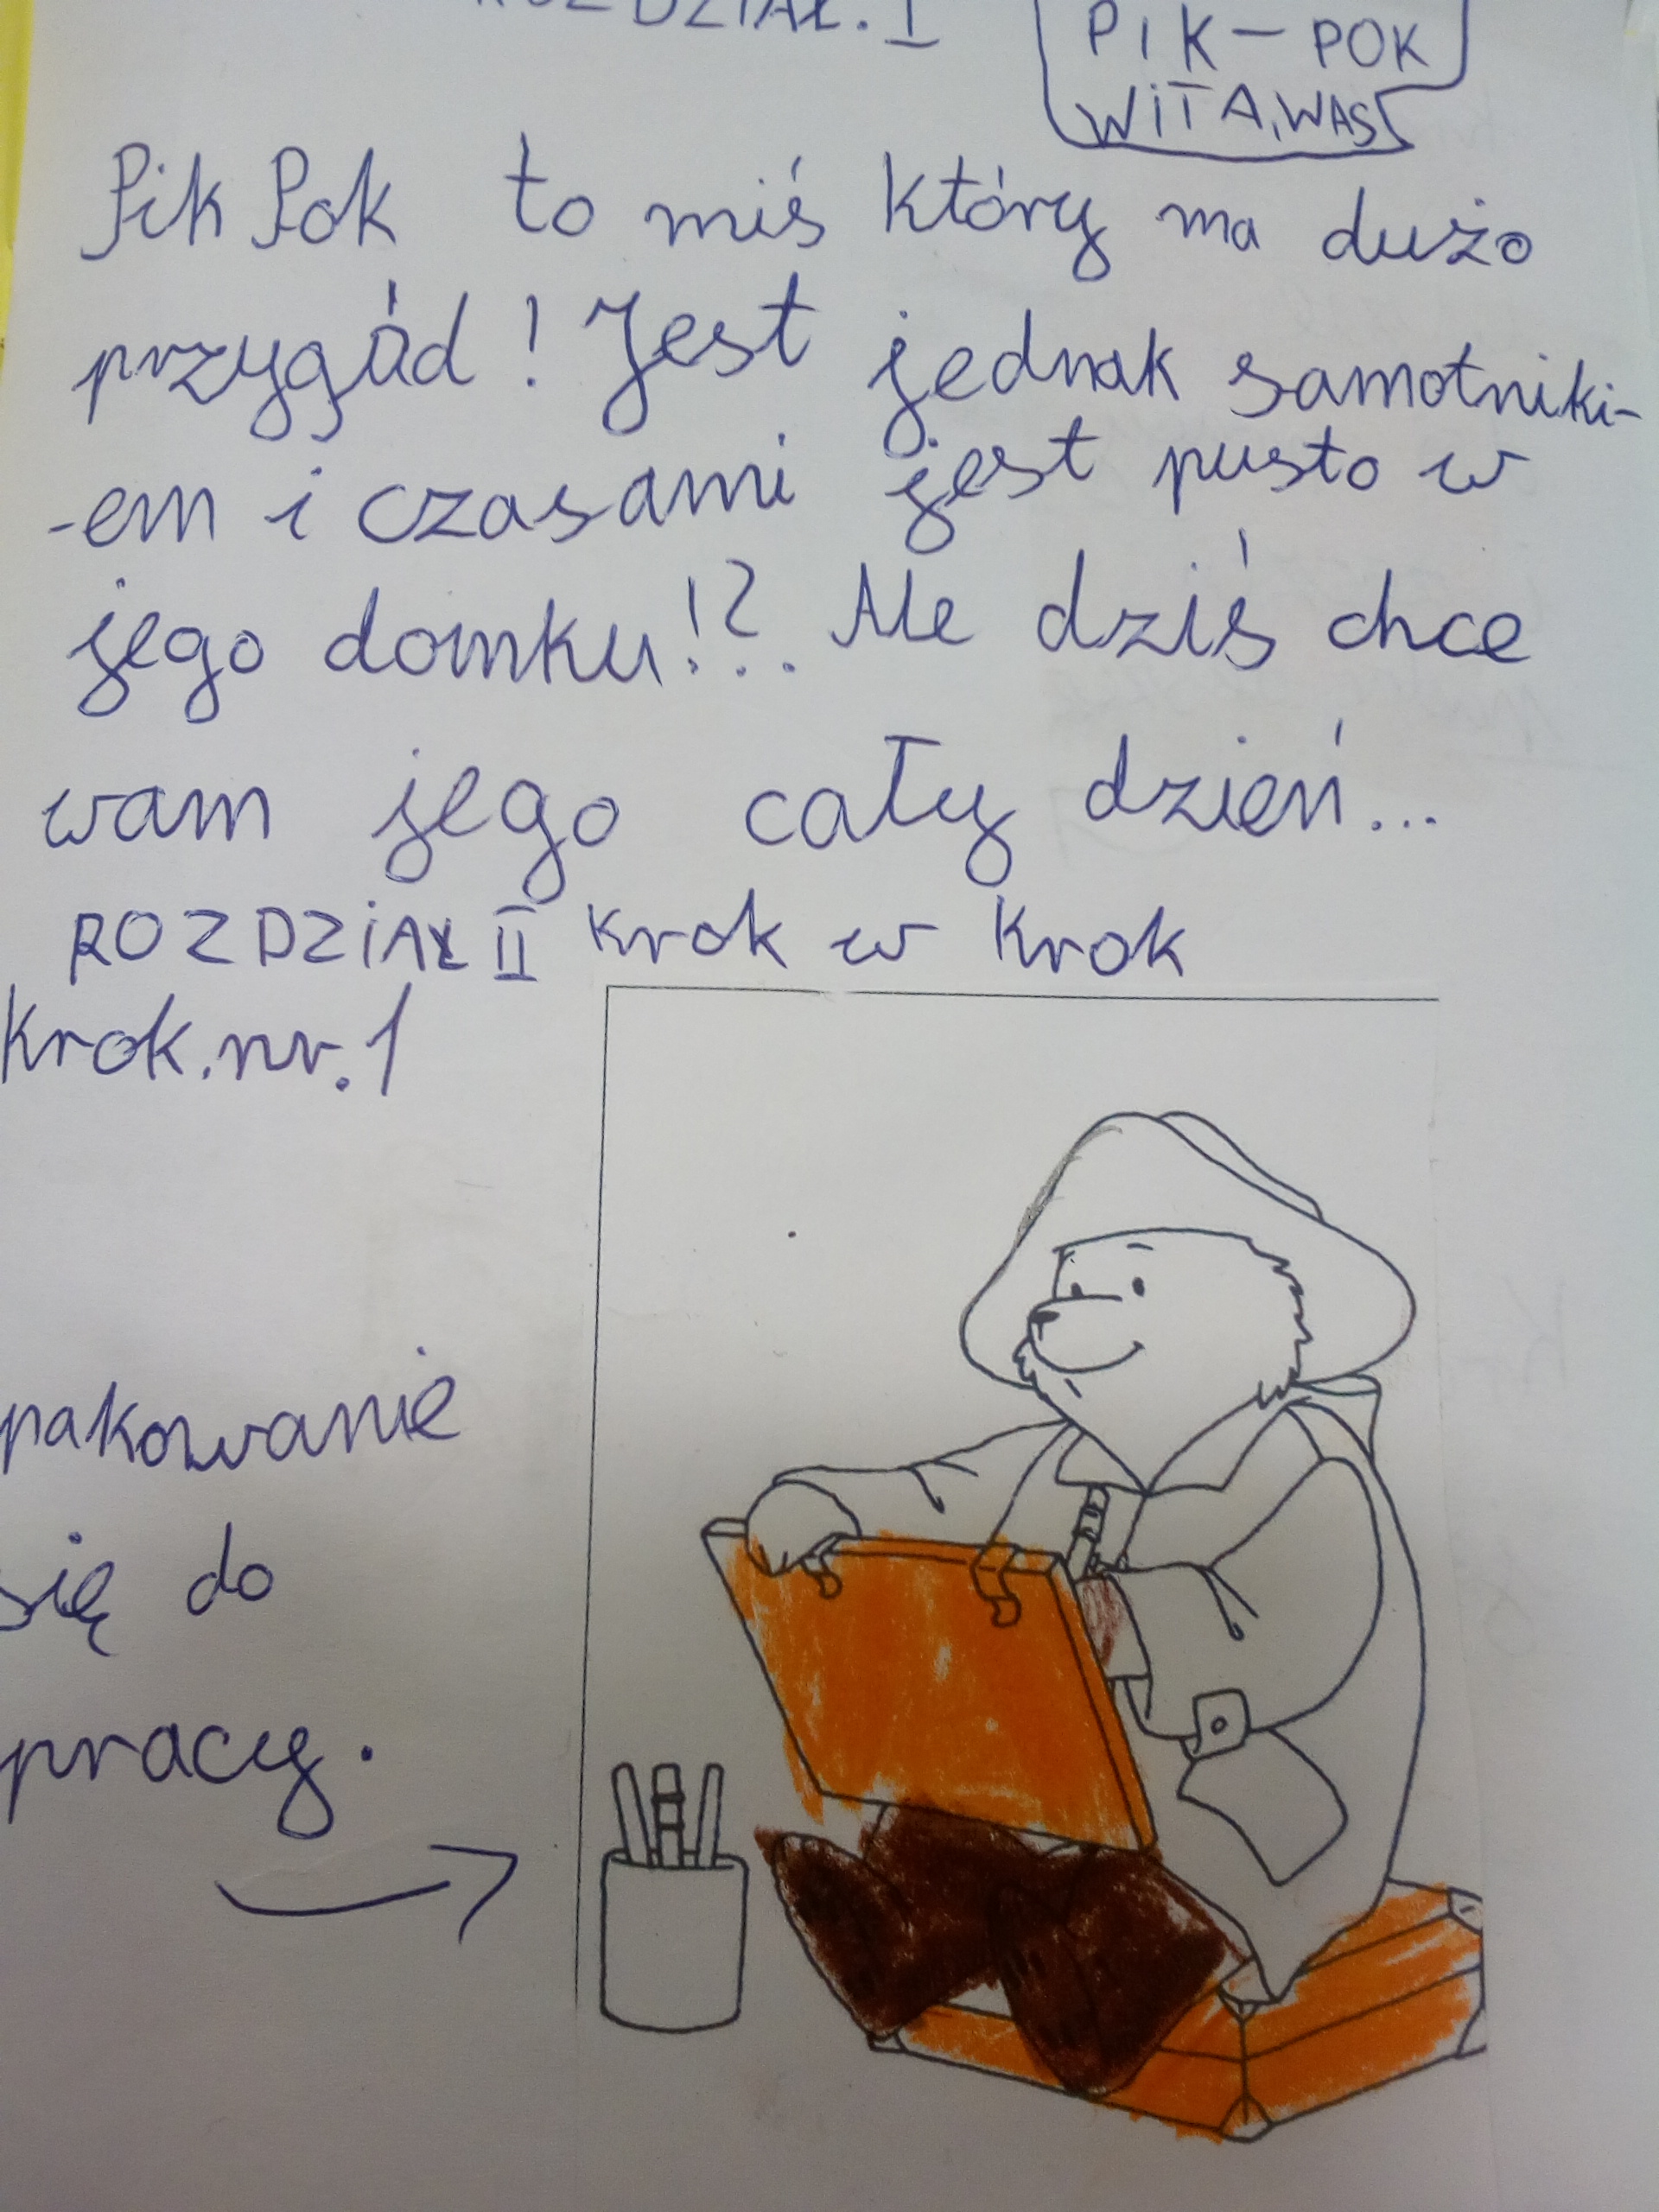 ROZDZIAŁ. I
PIK-POK
WITA,WAS
Pik Pok to miś który ma dużo
przygód! Jest jednak samotniki-
-em i czasami jest pusto w
jego domku!?.. Ale dziś chce
wam jego cały dzień...
ROZDZIAŁ II Krok w Krok
Krok.nr.1
pakowanie
się do
pracy.